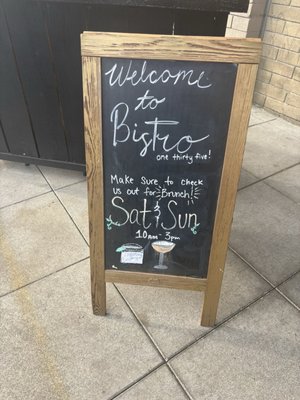 Welcome
to
Bistro
one thirty five!
Make sure to check
us out for Brunch!
Sat & Sun
10am - 3pm